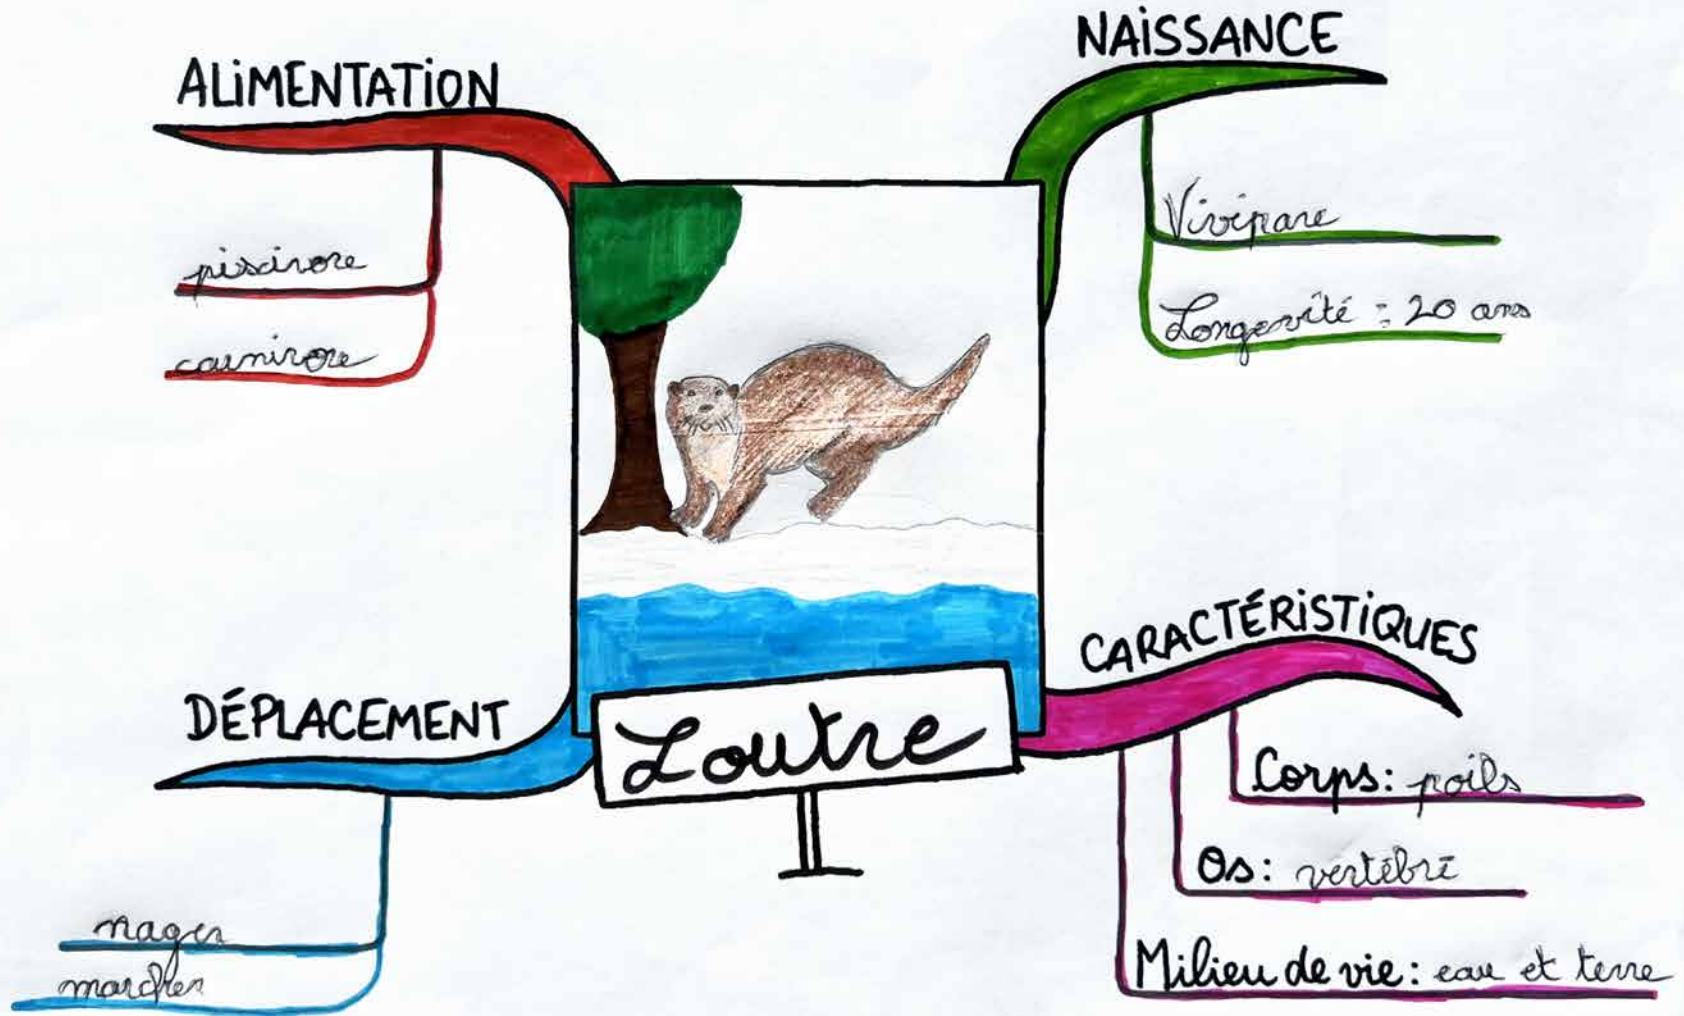 ALiMENTATiON
piscivore
carnivore
NAiSSANCE
Vivipare
Longévité : 20 ans
Loutre
DÉPLACEMENT
nager
marcher
CARACTÉRiSTiQUES
Corps: poils
Os: vertébré
Milieu de vie: eau et terre